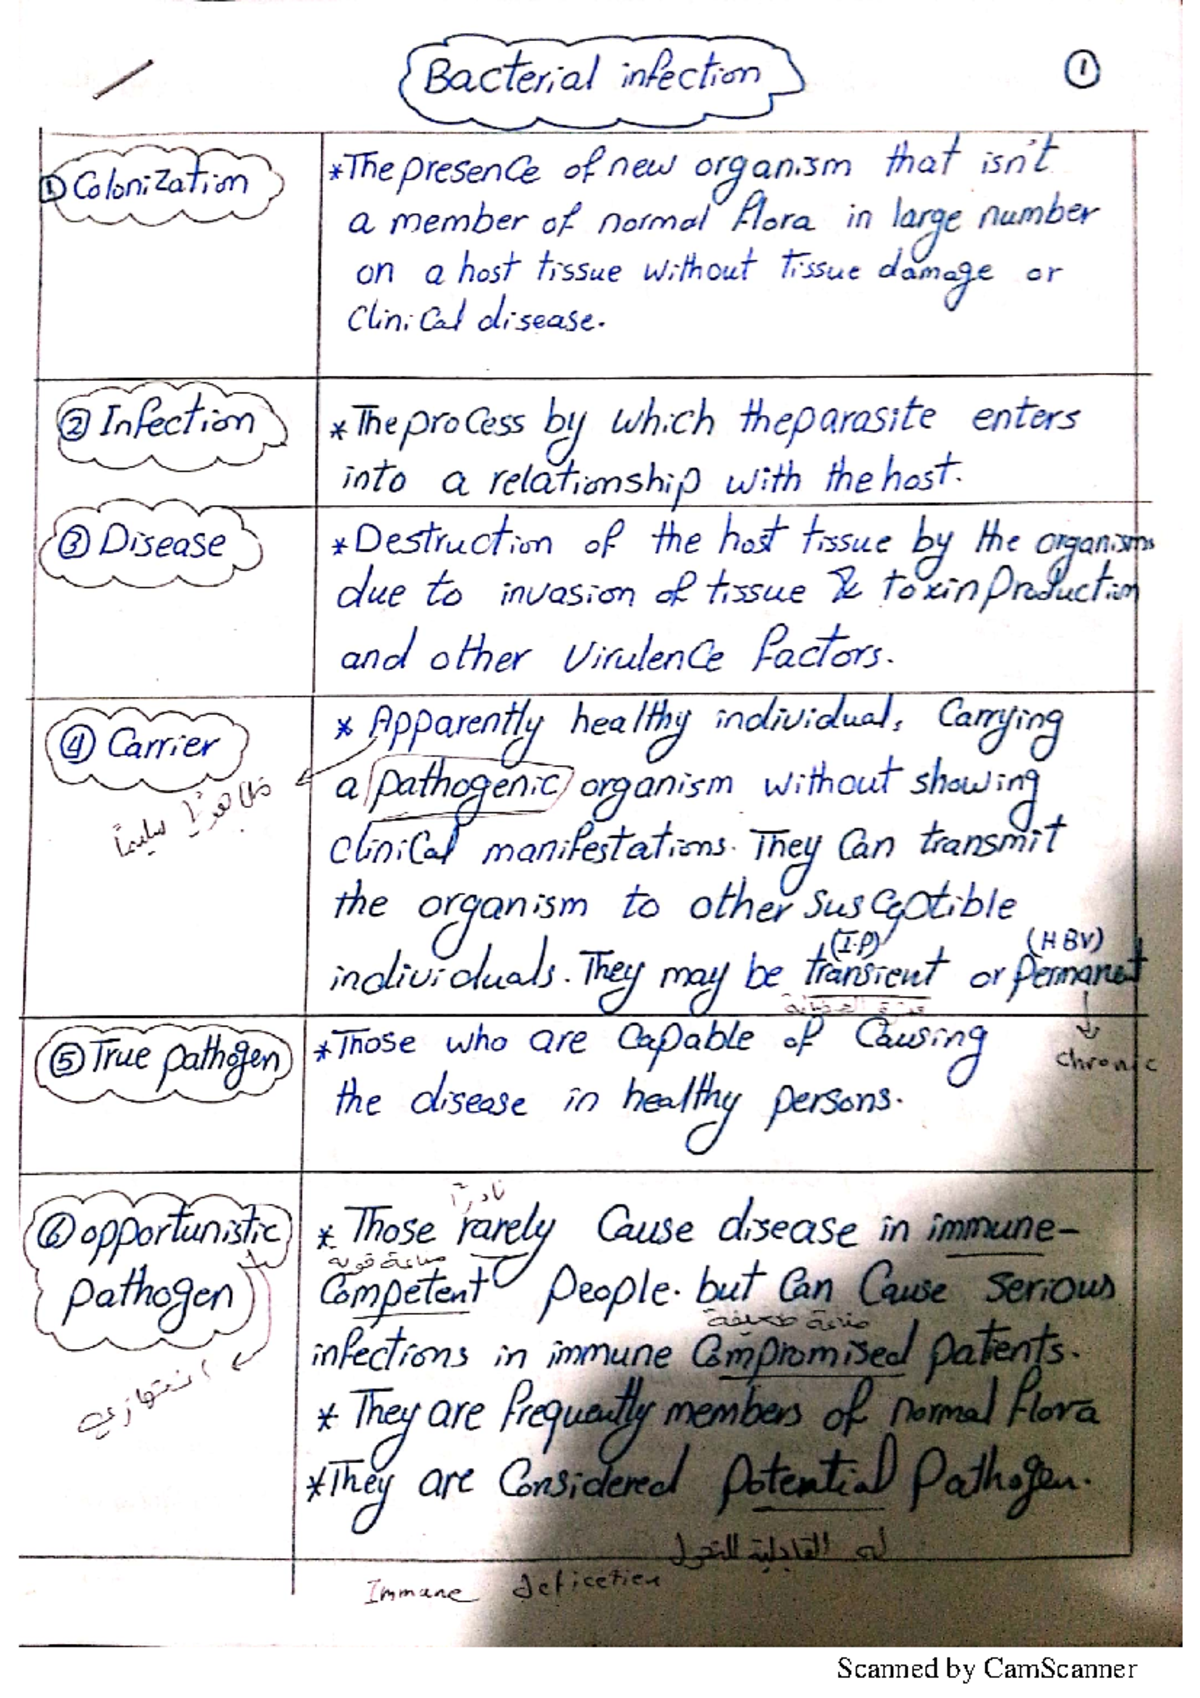 Bacterial infection
1
① Colonization
*The presence of new organism that isn't
a member of normal flora in large number
on a host tissue without tissue damage or
clinical disease.
② Infection
*The process by which the parasite enters
into a relationship with the host.
③ Disease
*Destruction of the host tissue by the organisms
due to invasion of tissue & toxin production
and other virulence factors.
④ Carrier
ظاهريًا سليمًا
* Apparently healthy individual, Carrying
a pathogenic organism without showing
clinical manifestations. They can transmit
the organism to other susceptible
(I.P) (HBV)
individuals. They may be transient or permanet
chronic
⑤ True pathogen
*Those who are capable of causing
the disease in healthy persons.
⑥ opportunistic
pathogen
انتهازي
نادرًا
* Those rarely cause disease in immune-
مناعة قوية
competent people. but can cause serious
مناعة ضعيفة
infections in immune compromised patents.
* They are frequently members of normal flora
*They are considered potential pathogen.
له القابلية للتحول
Immune
Scanned by CamScanner